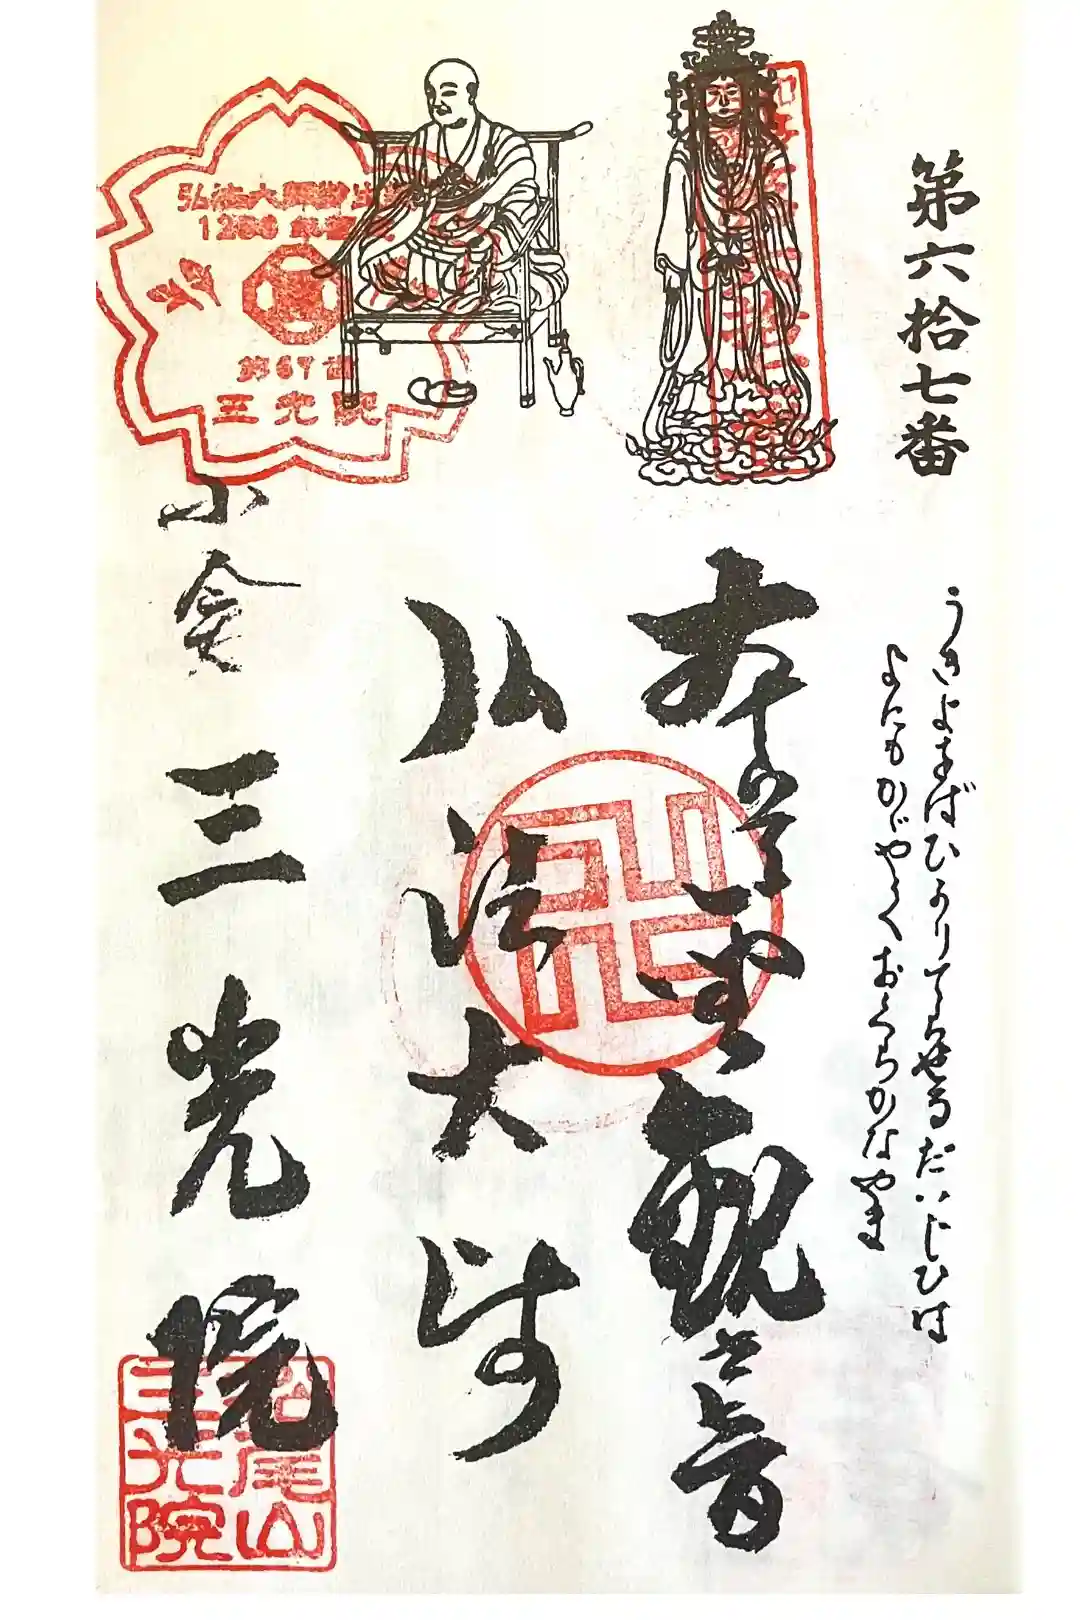 第六拾七番
うきよをばひかりてらせるだいじひは
よにもかがやくおくらかなやま
本尊 聖観世音
弘法大師
小倉 三光院
弘法大師御生誕
1250年記念
第67番
三光院
松尾山
三光院